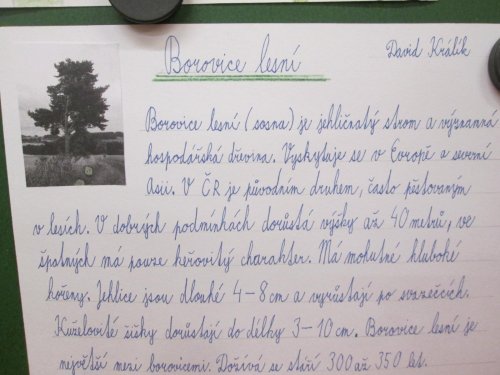 Borovice lesní
David Králík
Borovice lesní (sosna) je jehličnatý strom a významná
hospodářská dřevina. Vyskytuje se v Evropě a severní
Asii. V ČR je původním druhem, často pěstovaným
v lesích. V dobrých podmínkách dorůstá výšky až 40 metrů, ve
špatných má pouze keřovitý charakter. Má mohutné hluboké
kořeny. Jehlice jsou dlouhé 4-8 cm a vyrůstají po svazečcích.
Kuželovité šišky dorůstají do délky 3-10 cm. Borovice lesní je
největší mezi borovicemi. Dožívá se stáří 300 až 350 let.